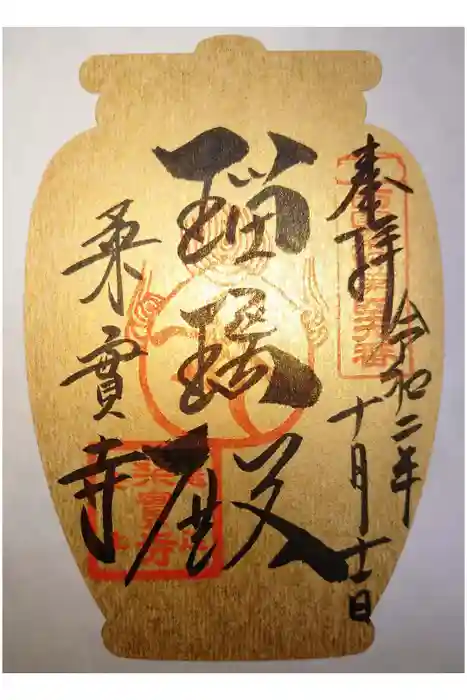 奉拝 令和二年
十月十一日
瑠璃殿
乗寳寺